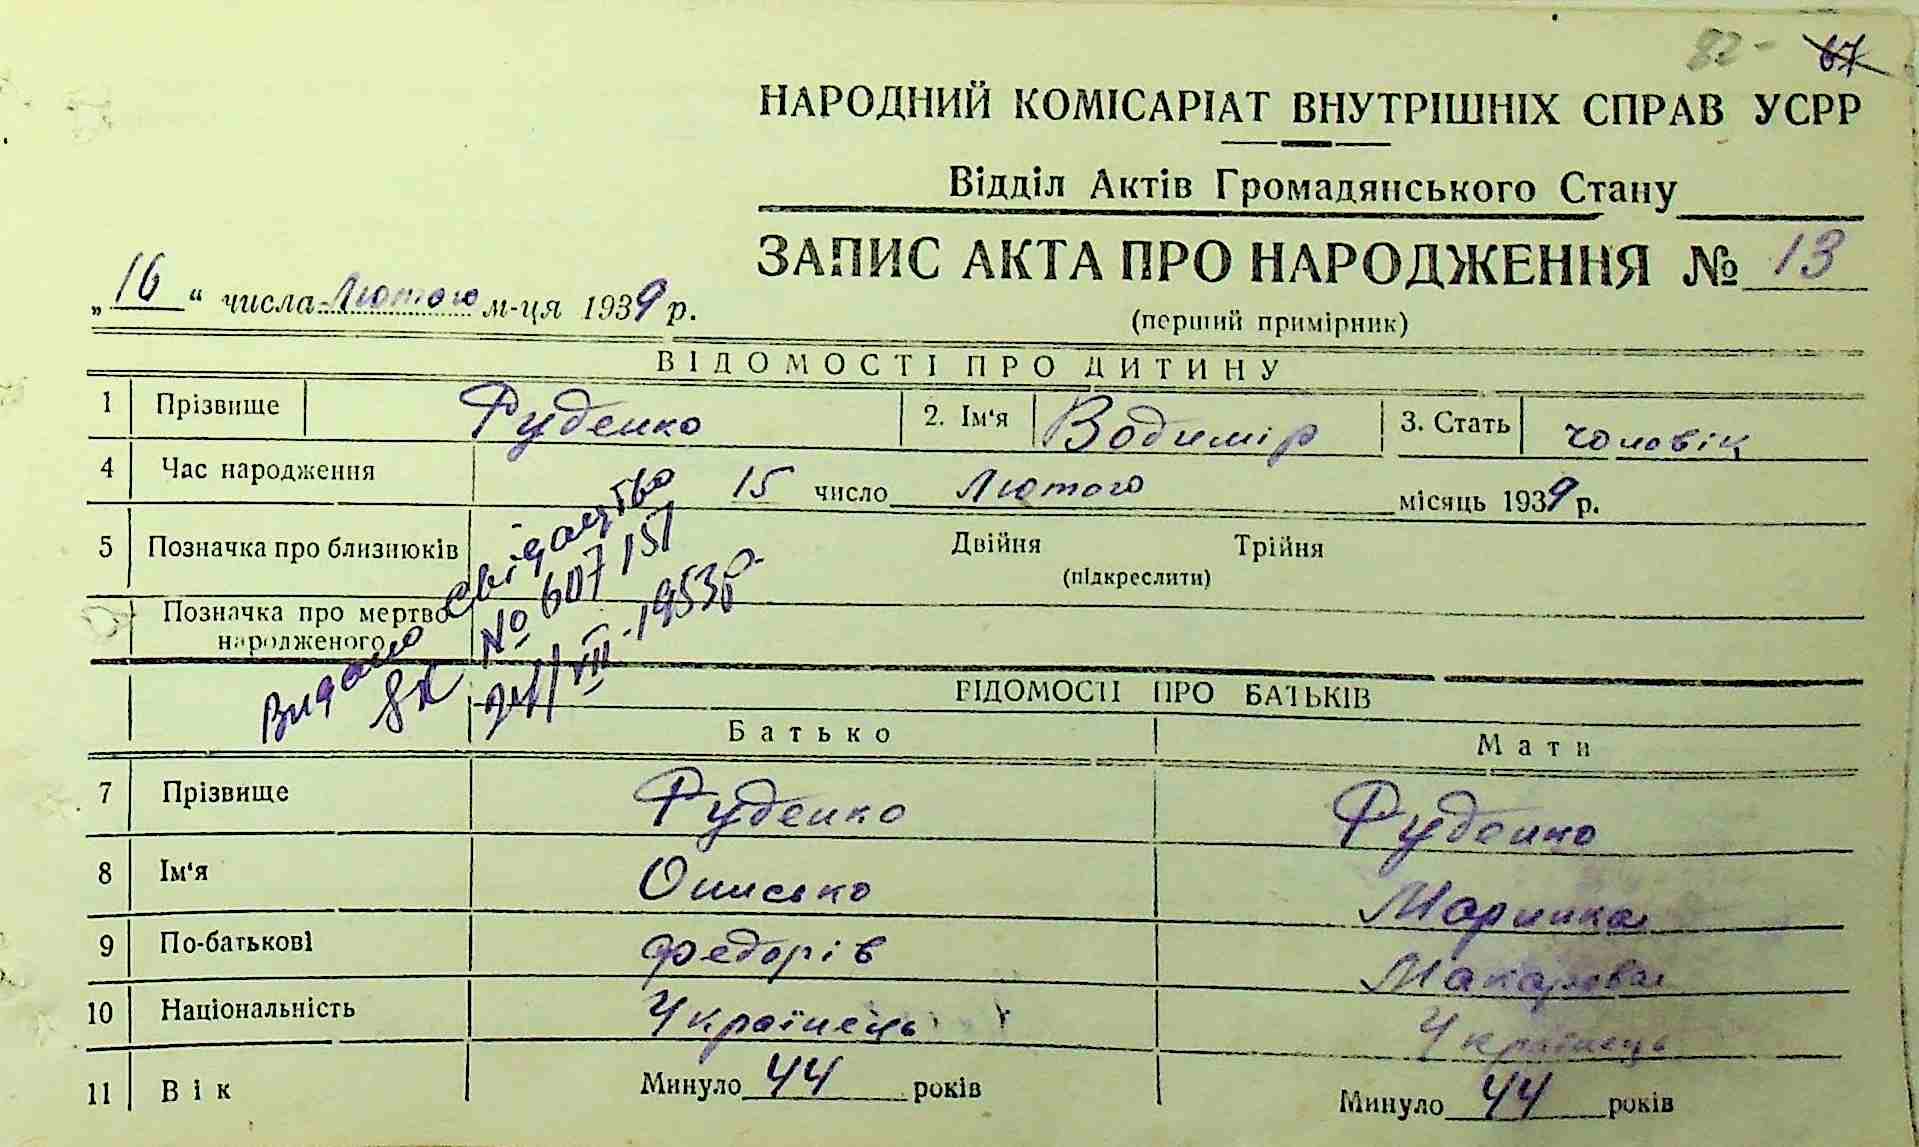 82-
67
НАРОДНИЙ КОМІСАРІАТ ВНУТРІШНІХ СПРАВ УСРР
Відділ Актів Громадянського Стану
ЗАПИС АКТА ПРО НАРОДЖЕННЯ № 13
„16“ числа Лютого м-ця 1939 р.
(перший примірник)
ВІДОМОСТІ ПРО ДИТИНУ
1 Прізвище Руденко 2. Ім'я Водимір 3. Стать чоловік
4 Час народження 15 число Лютого місяць 1939 р.
5 Позначка про близнюків Двійня Трійня
(підкреслити)
Позначка про мертво
народженого
Видано свідацтво
№ 607151
24/VIII-1953р.
ВІДОМОСТІ ПРО БАТЬКІВ
Батько Мати
7 Прізвище Руденко Руденко
8 Ім'я Описько Маринка
9 По-батькові Федорів Макарова
10 Національність Українець Українець
11 Вік Минуло 44 років Минуло 44 років